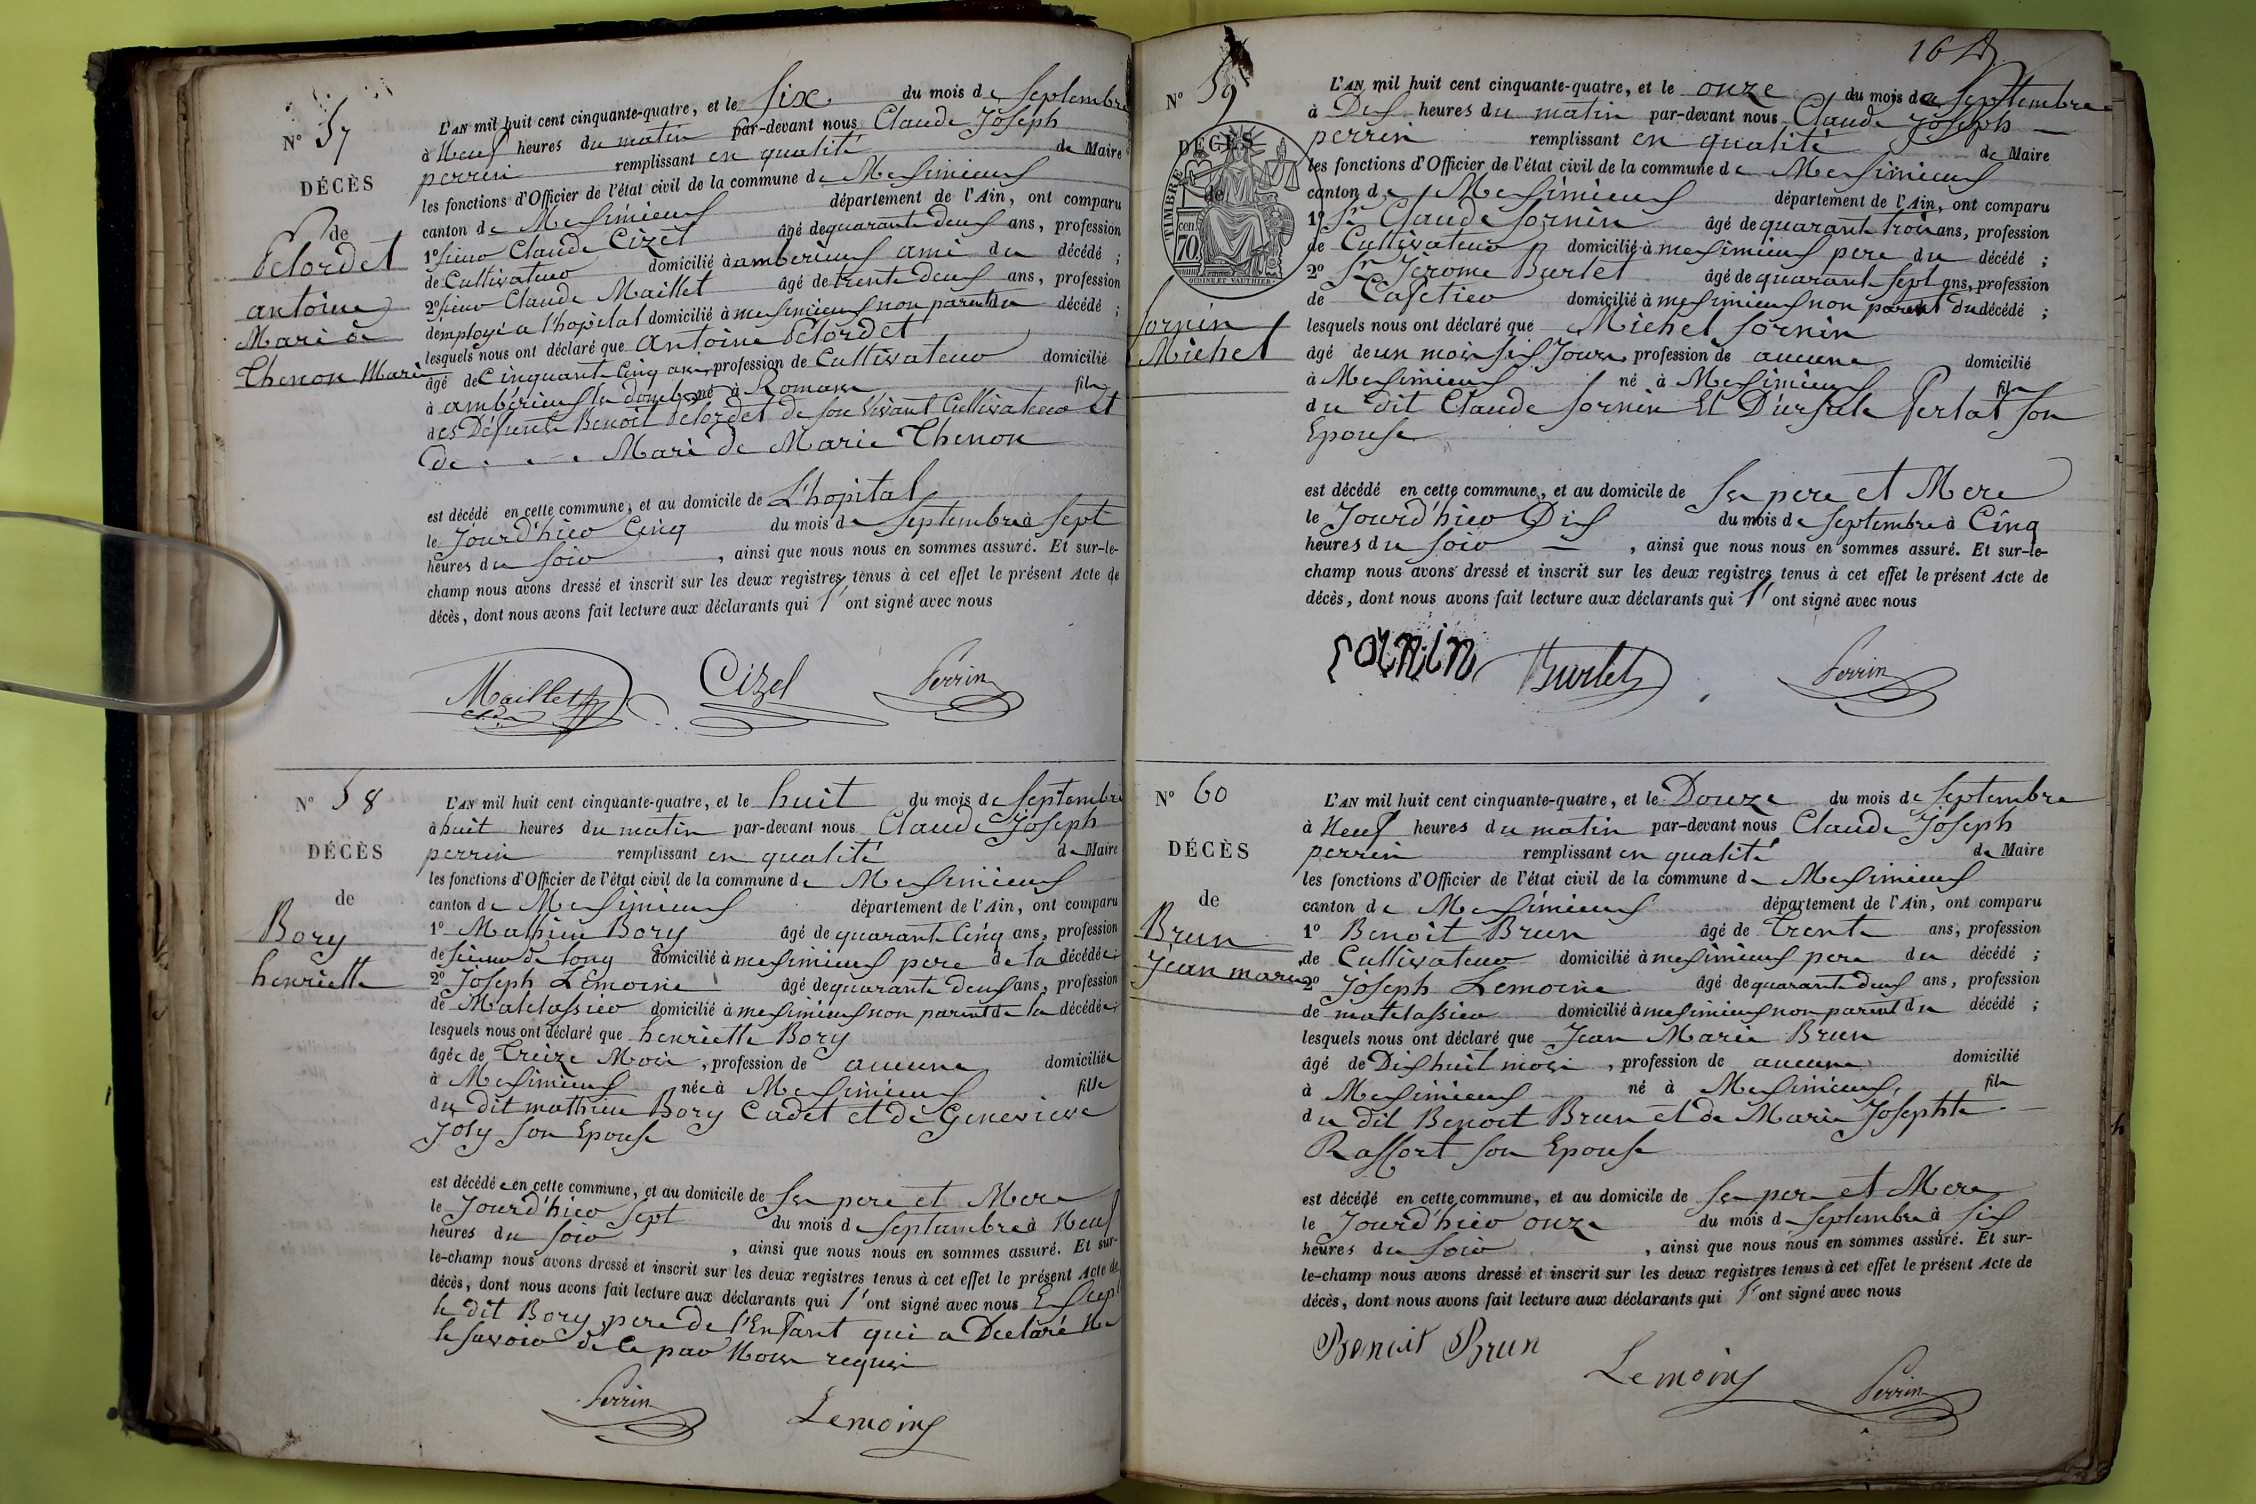 N° 57
DÉCÈS
de
Pelordet
antoine
Mari de
Thenon Marie
L'AN mil huit cent cinquante-quatre, et le six du mois de Septembre
à Neuf heures du matin par-devant nous Claude Joseph
perrin remplissant en qualité de Maire
les fonctions d'Officier de l'état civil de la commune de Meximieux
canton de Meximieux département de l'Ain, ont comparu
1° sieur Claude Cizel âgé de quarante deux ans, profession
de Cultivateur domicilié à ambérieux ami du décédé ;
2° sieur Claude Maillet âgé de trente deux ans, profession
demployé a l'hopital domicilié à meximieux non parent du décédé ;
lesquels nous ont déclaré que antoine Pelordet
âgé de Cinquante Cinq ans, profession de Cultivateur domicilié
à ambérieux en dombes né à Romans fils
des Défunts Benoit Pelordet de son vivant Cultivateur et
de . - - Mari de Marie Thenon
est décédé en cette commune, et au domicile de L'hopital
le Jourd'hier Cinq du mois de Septembre à Sept
heures du soir , ainsi que nous nous en sommes assuré. Et sur-le-
champ nous avons dressé et inscrit sur les deux registres tenus à cet effet le présent Acte de
décès, dont nous avons fait lecture aux déclarants qui l'ont signé avec nous
Maillet Cizel Perrin
N° 58
DÉCÈS
de
Bory
henriette
L'AN mil huit cent cinquante-quatre, et le huit du mois de Septembre
à huit heures du matin par-devant nous Claude Joseph
perrin remplissant en qualité de Maire
les fonctions d'Officier de l'état civil de la commune de Meximieux
canton de Meximieux département de l'Ain, ont comparu
1° Mathieu Bory âgé de quarante Cinq ans, profession
de sieur de long domicilié à meximieux pere de la décédée ;
2° Joseph Lemoine âgé de quarante deux ans, profession
de Matelassier domicilié à meximieux non parent de la décédée ;
lesquels nous ont déclaré que henriette Bory
âgée de Treize Mois , profession de aucune domiciliée
à Meximieux née à Meximieux fille
du dit mathieu Bory Cadet et de Genevieve
Joly son Epouse
est décédée en cette commune, et au domicile de ses pere et Mere
le Jourd'hier Sept du mois de Septembre à Neuf
heures du soir , ainsi que nous nous en sommes assuré. Et sur-
le-champ nous avons dressé et inscrit sur les deux registres tenus à cet effet le présent Acte de
décès, dont nous avons fait lecture aux déclarants qui l'ont signé avec nous Excepté
le dit Bory pere de l'Enfant qui a Declaré Ne
le savoir de ce par Nous requis
Perrin Lemoine
164
N° 59
DÉCÈS
de
TIMBRE
70 cen
OUDINE ET VAUTHIER
Sornin
Michel
L'AN mil huit cent cinquante-quatre, et le onze du mois de Septembre
à Dix heures du matin par-devant nous Claude Joseph
perrin remplissant en qualité de Maire
les fonctions d'Officier de l'état civil de la commune de Meximieux
canton de Meximieux département de l'Ain, ont comparu
1° Sr Claude Sornin âgé de quarante trois ans, profession
de Cultivateur domicilié à meximieux pere du décédé ;
2° Sr Jérome Burlet âgé de quarante sept ans, profession
de Cafetier domicilié à meximieux non parent du décédé ;
lesquels nous ont déclaré que Michel Sornin
âgé de un mois six Jours, profession de aucune domicilié
à Meximieux né à Meximieux fils
du dit Claude Sornin Et D'ursule Perlat son
Epouse
est décédé en cette commune, et au domicile de ses pere et Mere
le Jourd'hier Dix du mois de Septembre à Cinq
heures du soir , ainsi que nous nous en sommes assuré. Et sur-le-
champ nous avons dressé et inscrit sur les deux registres tenus à cet effet le présent Acte de
décès, dont nous avons fait lecture aux déclarants qui l'ont signé avec nous
sornin Burlet Perrin
N° 60
DÉCÈS
de
Brun
Jean marie
L'AN mil huit cent cinquante-quatre, et le Douze du mois de Septembre
à Neuf heures du matin par-devant nous Claude Joseph
perrin remplissant en qualité de Maire
les fonctions d'Officier de l'état civil de la commune de Meximieux
canton de Meximieux département de l'Ain, ont comparu
1° Benoit Brun âgé de Trente ans, profession
de Cultivateur domicilié à meximieux pere du décédé ;
2° Joseph Lemoine âgé de quarante deux ans, profession
de matelassier domicilié à meximieux non parent du décédé ;
lesquels nous ont déclaré que Jean Marie Brun
âgé de Dix huit mois , profession de aucune domicilié
à Meximieux né à Meximieux fils
du dit Benoit Brun et de Marie Josephte
Raffort son Epouse
est décédé en cette commune, et au domicile de ses pere et Mere
le Jourd'hier onze du mois de Septembre à six
heures du soir , ainsi que nous nous en sommes assuré. Et sur-
le-champ nous avons dressé et inscrit sur les deux registres tenus à cet effet le présent Acte de
décès, dont nous avons fait lecture aux déclarants qui l'ont signé avec nous
Benoit Brun
Lemoine Perrin